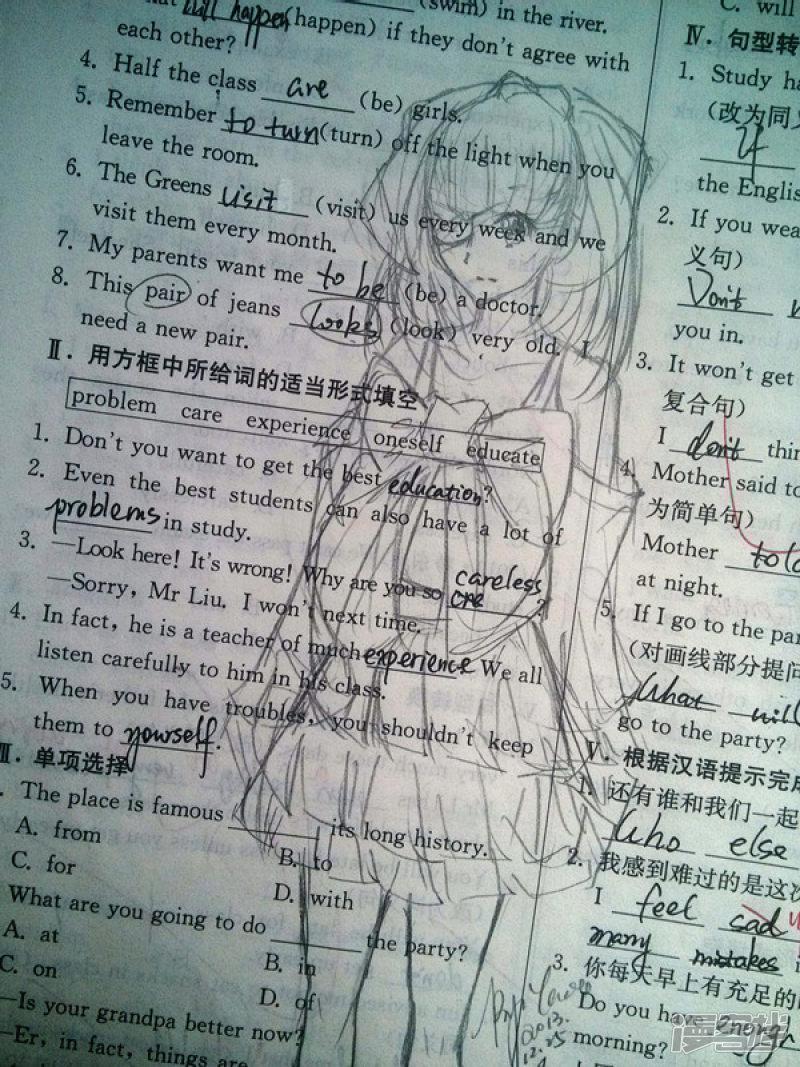 will happen (happen) if they don't agree with
(swim) in the river.
each other?
4. Half the class are (be) girls.
5. Remember to turn (turn) off the light when you
leave the room.
6. The Greens visit (visit) us every week and we
visit them every month.
7. My parents want me to be (be) a doctor.
8. This pair of jeans looks (look) very old. I
need a new pair.
Ⅱ. 用方框中所给词的适当形式填空
problem care experience oneself educate
1. Don't you want to get the best education?
2. Even the best students can also have a lot of
problems in study.
3. —Look here! It's wrong! Why are you so careless ?
—Sorry, Mr Liu. I won't next time.
4. In fact, he is a teacher of much experience We all
listen carefully to him in his class.
5. When you have troubles, you shouldn't keep
them to yourself.
Ⅲ. 单项选择
. The place is famous its long history.
A. from B. to
C. for D. with
What are you going to do the party?
A. at B. in
C. on D. of
—Is your grandpa better now?
—Er, in fact, things are
C. will
Ⅳ. 句型转
1. Study ha
(改为同义
If
the Englis
2. If you wea
义句)
Don't
you in.
3. It won't get
复合句)
I don't thin
4. Mother said to
为简单句)
Mother told
at night.
5. If I go to the par
(对画线部分提问
What will
go to the party?
Ⅴ. 根据汉语提示完成
1. 还有谁和我们一起
Who else
2. 我感到难过的是这次
I feel sad
many mistakes
3. 你每天早上有充足的
Do you have energ
morning?
2013.
12.25
漫客栈